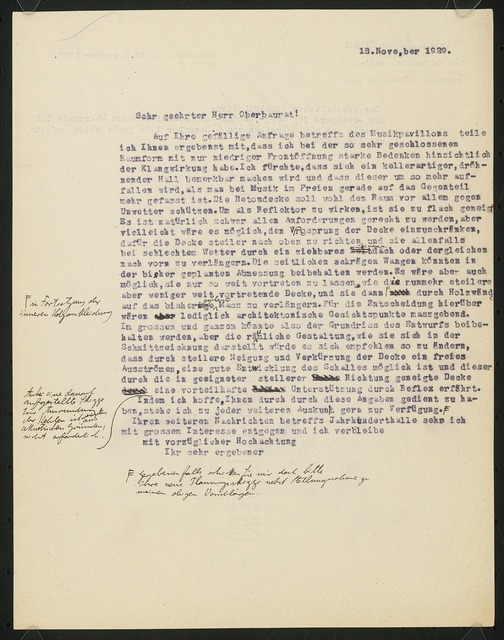 18.Nove,ber 1929.
Sehr geehrter Herr Oberbaurat!
Auf Ihre gefällige Anfrage betreffs des Musikpavillons teile
ich Ihnen ergebenst mit,dass ich bei der so sehr geschlossenen
Raumform mit nur niedriger Frontöffnung starke Bedenken hinsichtlich
der Klangwirkung habe.Ich fürchte,dass sich ein kellerartiger,dröh-
nender Hall bemerkbar machen wird und dass dieser um so mehr auf-
fallen wird,als man bei Musik im Freien gerade auf das Gegenteil
mehr gefasst ist.Die Betondecke soll wohl den Raum vor allem gegen
Unwetter schützen.Um als Reflektor zu wirken,ist sie zu flach geneigt
Es ist natürlich schwer allen Anforderungen gerecht zu werden,aber
vielleicht wäre es möglich,den Vorsprung der Decke einzuschränken,
dafür die Decke steiler nach oben zu richten und sie allenfalls
bei schlechtem Wetter durch ein ziehbares dach oder dergleichen
nach vorn zu verlängern.Die seitlichen schrägen Wangen könnten in
der bisher geplanten Abmessung beibehalten werden.Es wäre aber auch
möglich,sie nur so weit vortreten zu lassen,wie die nunmehr steilere
aber weniger weit vortretende Decke,und sie dann durch Holzwände
auf das bisherige Mass zu verlängern.Für die Entscheidung hierüber
wären lediglich architektonische Gesichtspunkte massgebend.
Im grossen und ganzen könnte also der Grundriss des Entwurfs beibe-
halten werden,aber die räumliche Gestaltung,wie sie sich in der
Schnittzeichnung darstellt würde es sich empfehlen so zu ändern,
dass durch steilere Neigung und Verkürzung der Decke ein freies
Ausströmen,eine gute Entwicklung des Schalles möglich ist und dieser
durch die in geeigneter steilerer Richtung geneigte Decke
eine vorteilhafte Unterstützung durch Reflex erfährt.
Indem ich hoffe,Ihnen durch diese Angaben gedient zu ha-
ben,stehe ich zu jeder weiteren Auskunft gern zur Verfügung.F
Ihren weiteren Nachrichten betreffs Jahrhunderthalle sehe ich
mit grossem Interesse entgegen und ich verbleibe
mit vorzüglicher Hochachtung
Ihr sehr ergebener
in Fortsetzung der
inneren Holzverkleidung
F gegebenenfalls bitte
Ihre neue Planungsskizze nebst Stellungnahme zu
meinen obigen Vorschlägen